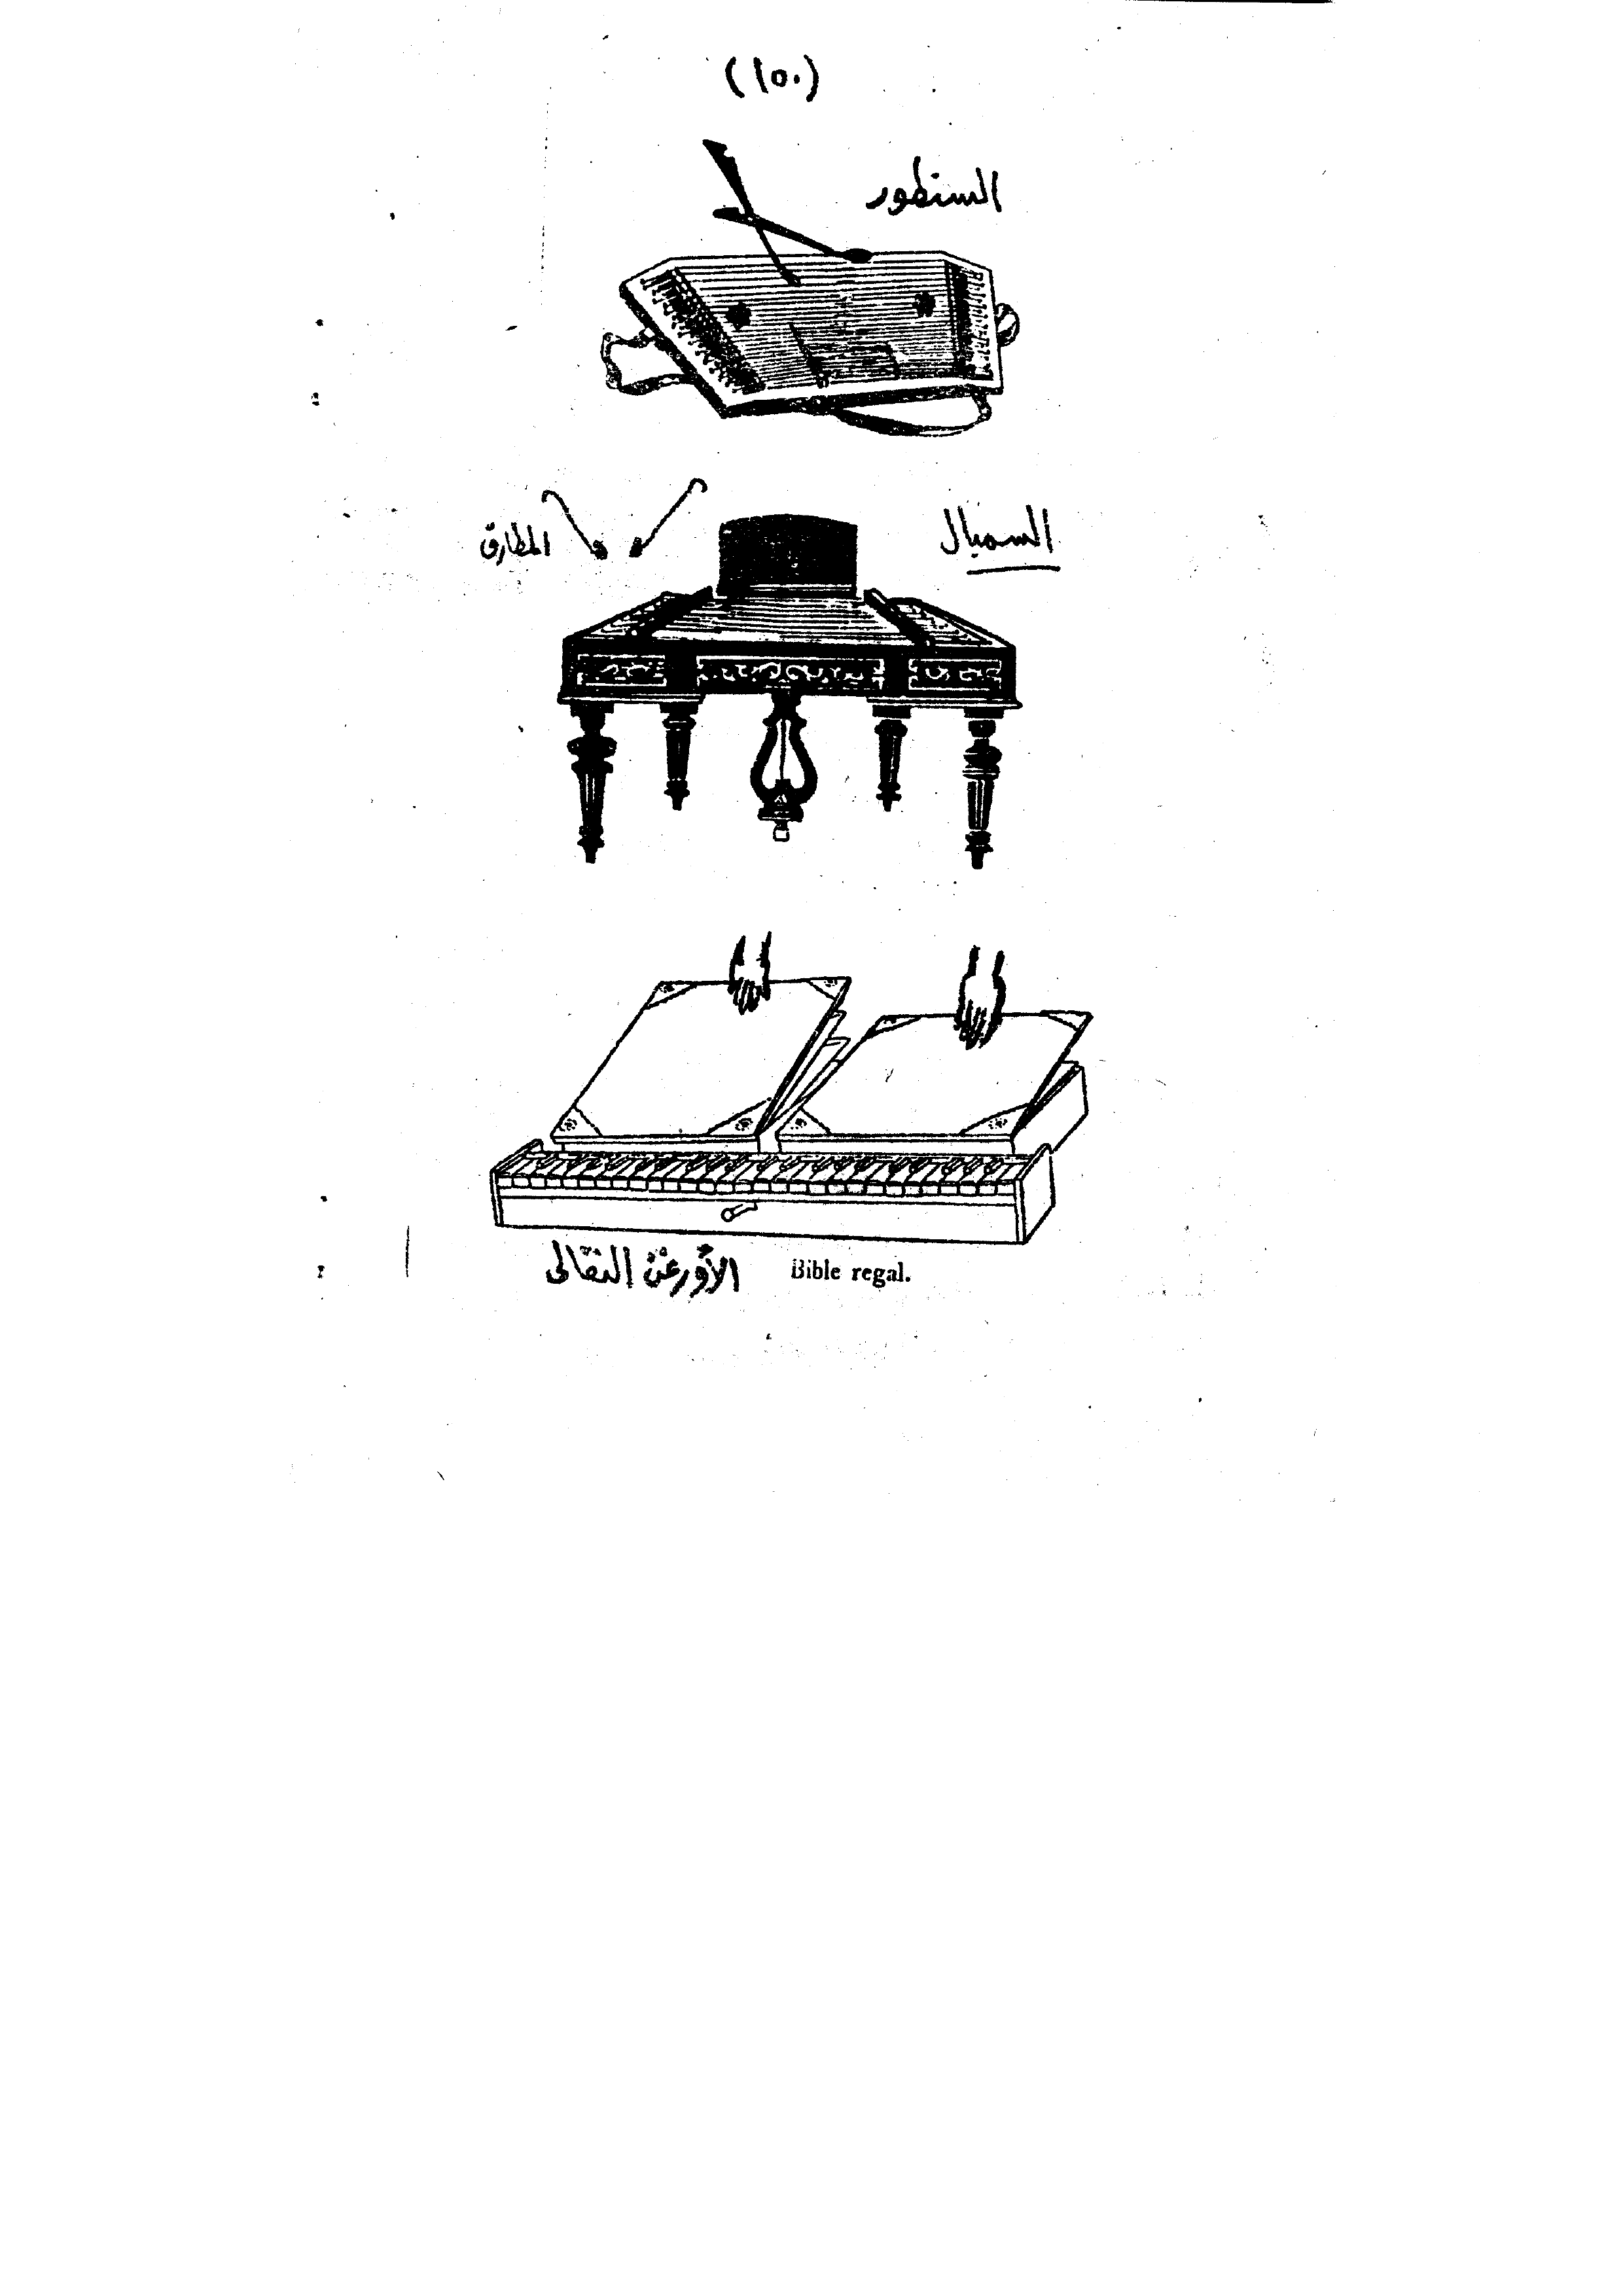 (١٥٠)
السنطور
السمبال
المطارق
الأورغن النقالى
Bible regal.